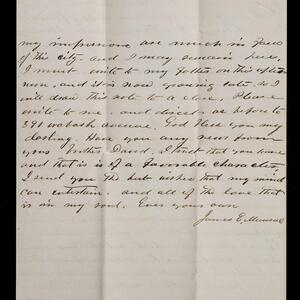 my impressions are much in favor
of this city. and I may remain here,
I must write to my father on this after
noon, and it is now growing late. so I
will draw this note to a close. Please
write to me. and direct as before to
391 wabash avenue. God bless you my
darling. Have you any news from
your brother David. I trust that you have
and that is is of a favorable character,
I send you the best wishes that my mind
can entertain. and all of the love that
is in my soul. Ever your own
James E.